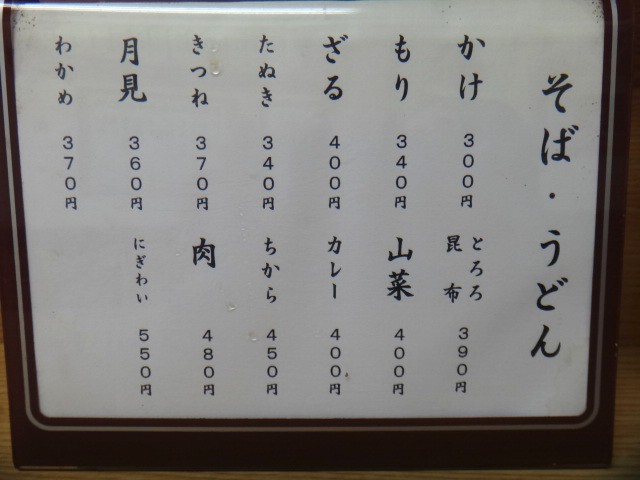 そば・うどん
かけ 300円
もり 340円
ざる 400円
たぬき 340円
きつね 370円
月見 360円
わかめ 370円
とろろ昆布 390円
山菜 400円
カレー 400円
ちから 450円
肉 480円
にぎわい 550円